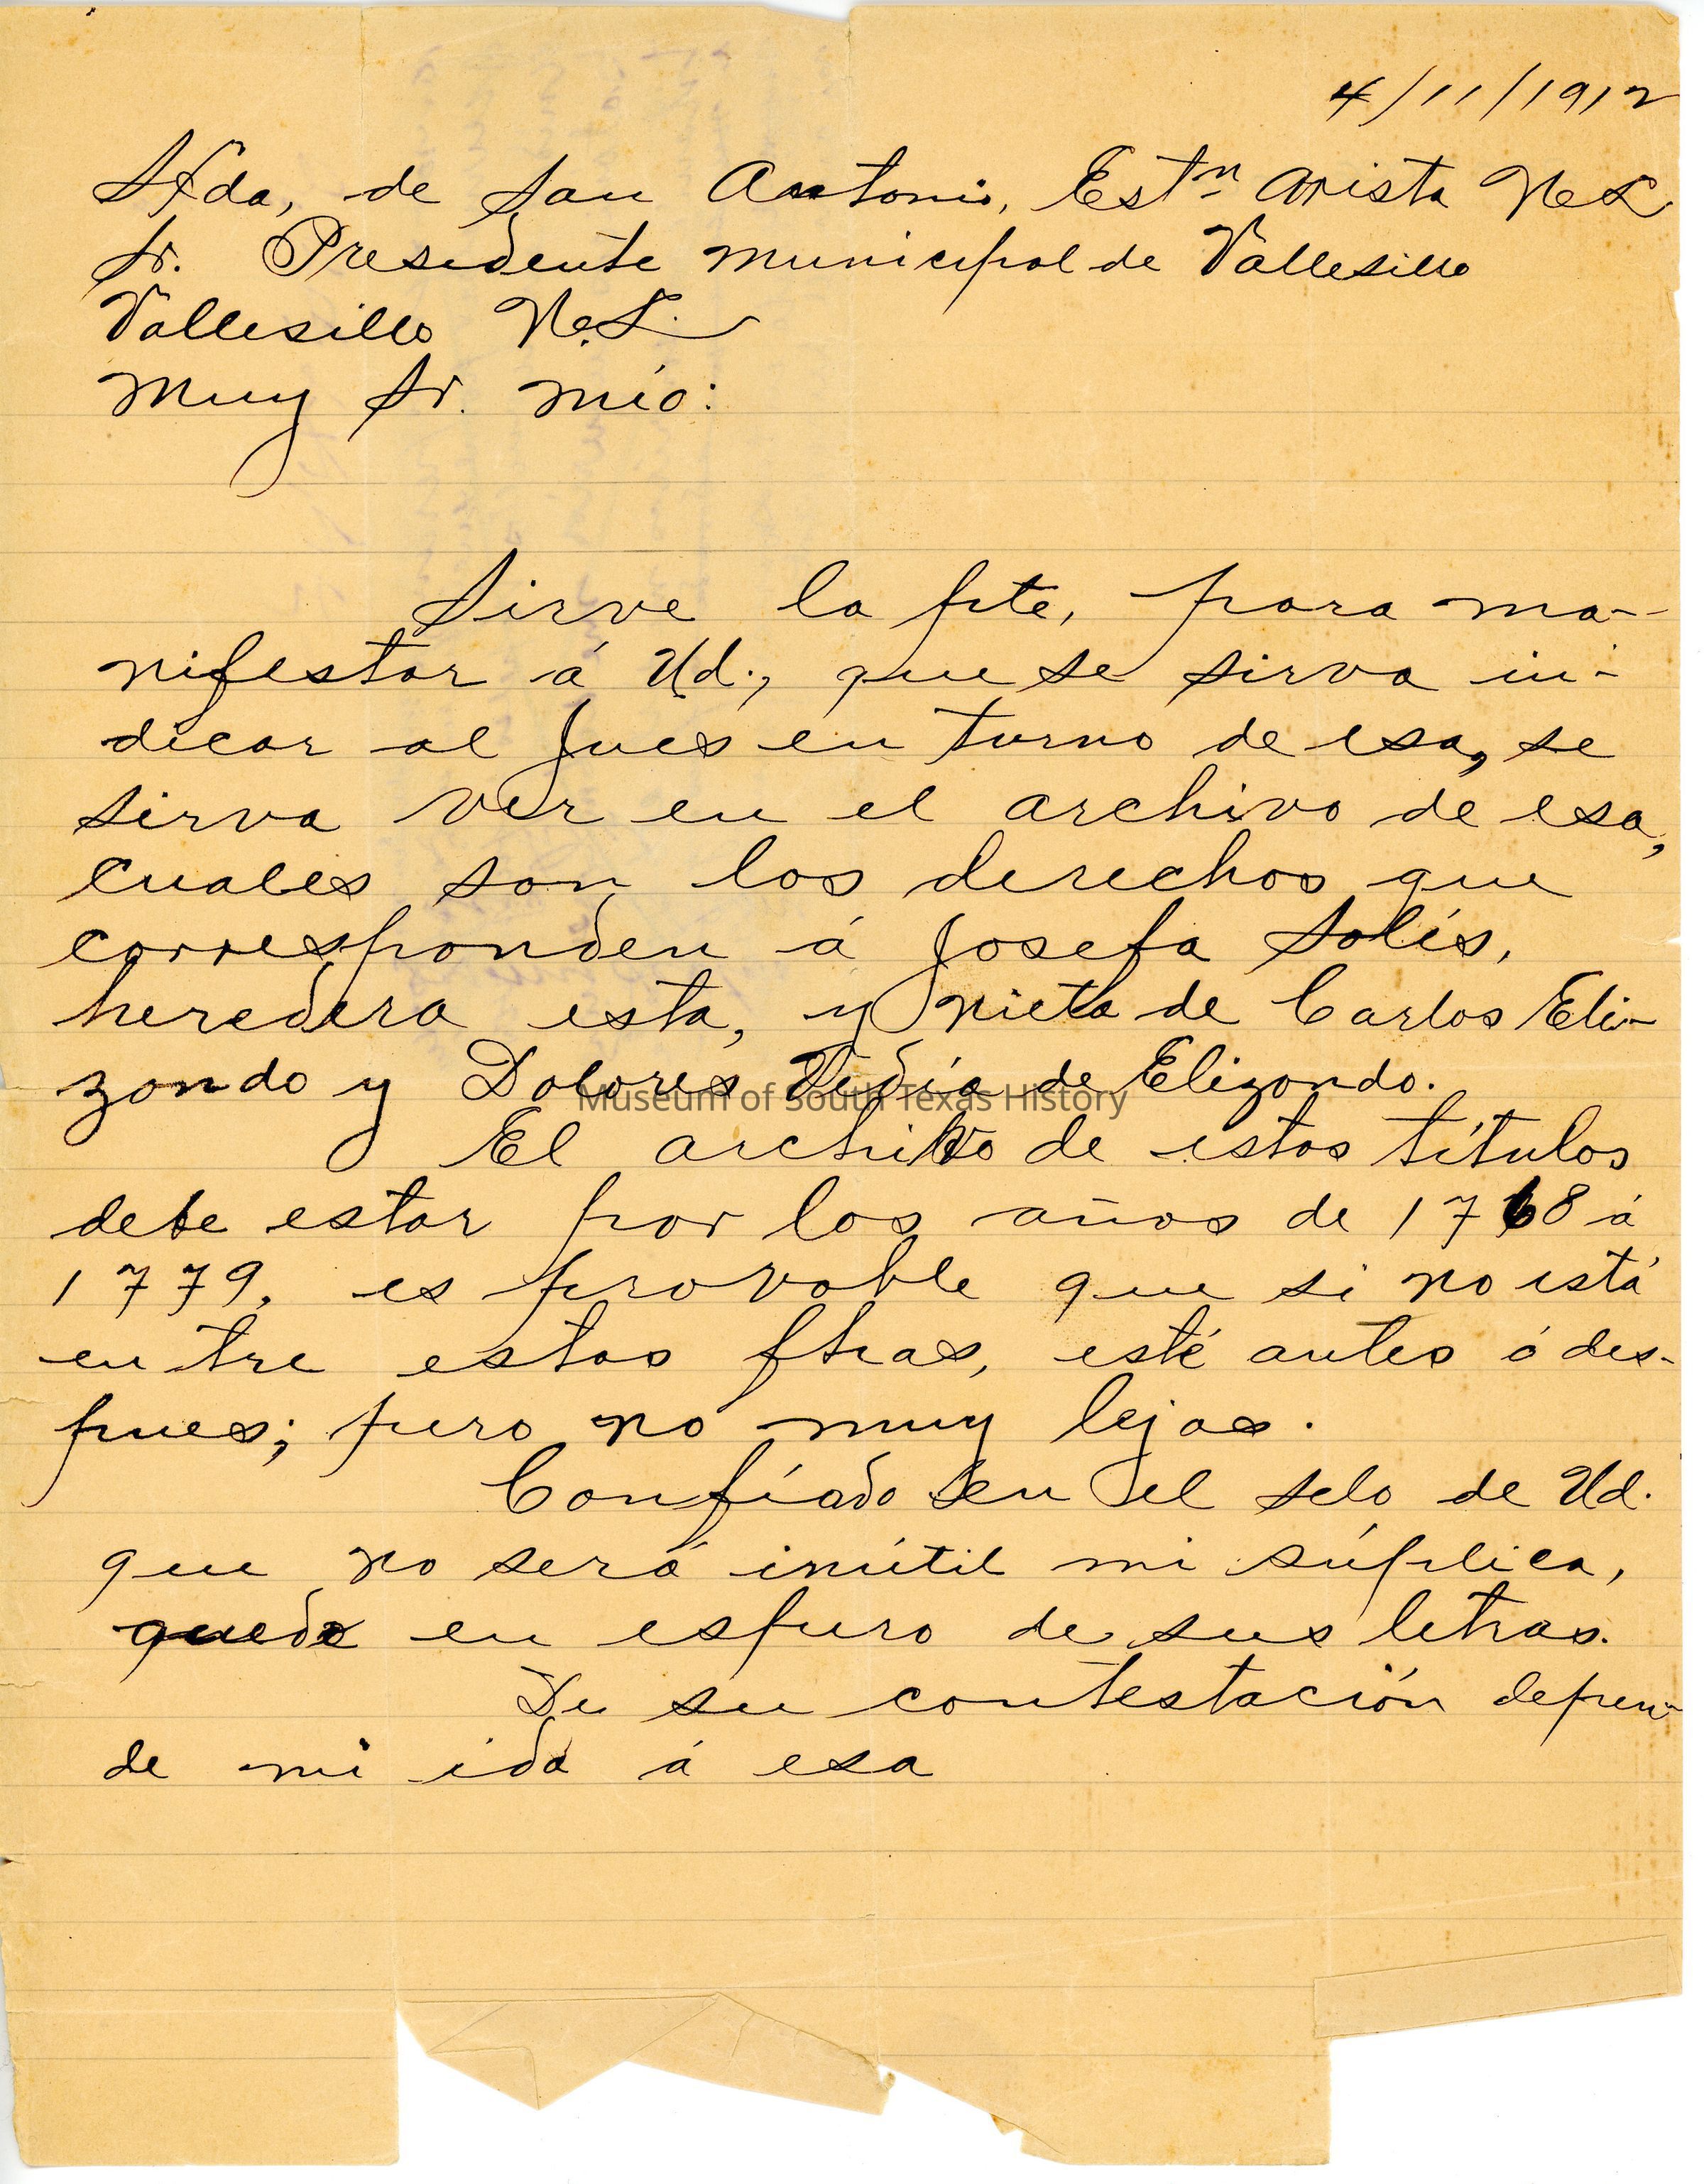 4/11/1912
Hda, de San Antonio, Estn Arista N. L
Sr. Presidente municipal de Vallesillo
Vallesillo N. L.
Muy Sr. mío:
Sirve la pte, para ma-
nifestar á Ud., que se sirva in-
dicar al Jues en turno de esa, se
sirva ver en el archivo de esa,
cuales son los derechos que
corresponden á Josefa Solís,
heredera esta, y nieta de Carlos Eli-
zondo y Dolores de Elizondo.
Museum of South Texas History
El archivo de estos títulos
debe estar por los años de 1768 á
1779. es provable que si no está
entre estas fhas, esté antes ó des-
pues; pero no muy lejos.
Confíado en el selo de Ud.
que no será inútil mi súplica,
quedo en espero de sus letras.
De su contestación depen-
de mi ida á esa